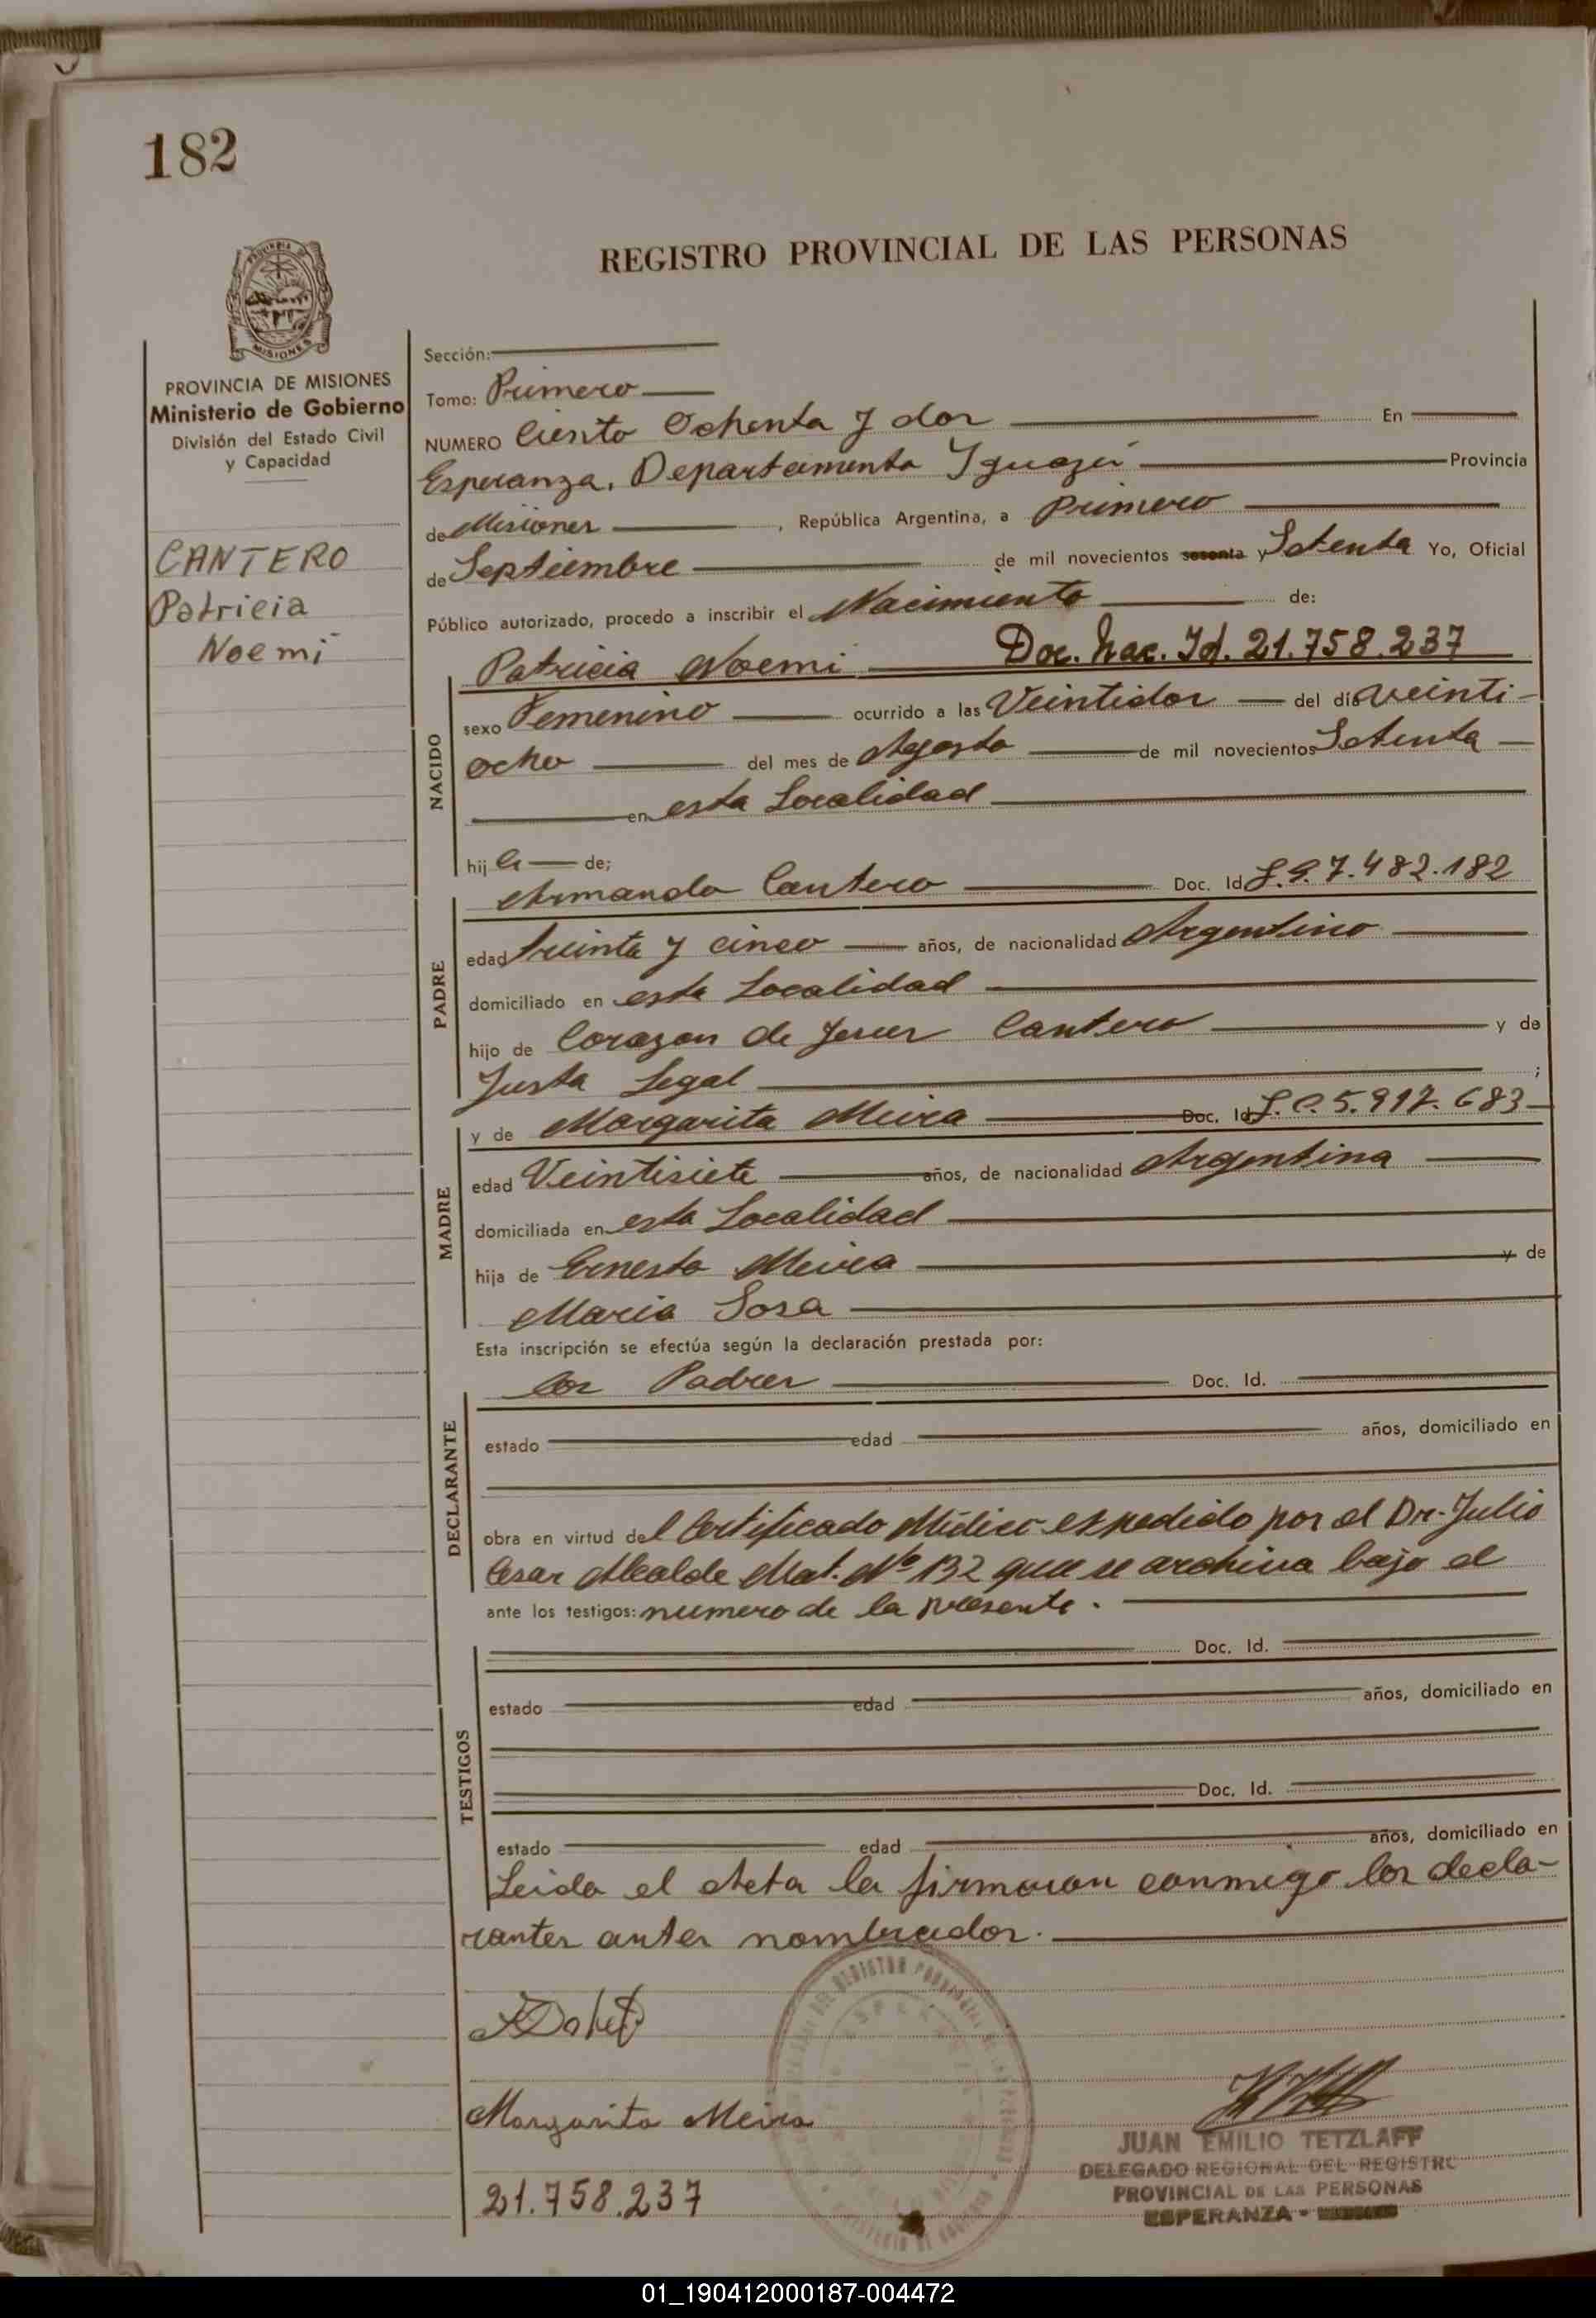 182
REGISTRO PROVINCIAL DE LAS PERSONAS
MISIONES
PROVINCIA DE MISIONES
Ministerio de Gobierno
División del Estado Civil
y Capacidad
CANTERO
Patricia
Noemi
Sección:
Tomo: Primero
NUMERO Ciento Ochenta y dos En
Esperanza, Departamento Iguazú Provincia
de Misiones, República Argentina, a Primero
de Septiembre de mil novecientos sesenta y Setenta Yo, Oficial
Público autorizado, procedo a inscribir el Nacimiento de:
Patricia Noemi Doc. Nac. Id. 21.758.237
NACIDO
sexo Femenino ocurrido a las Veintidos del día veinti-
ocho del mes de Agosto de mil novecientos Setenta
en esta Localidad
hija de;
PADRE
Armando Cantero Doc. Id. 7.482.182
edad treinta y cinco años, de nacionalidad Argentino
domiciliado en esta Localidad
hijo de Corazon de Jesus Cantero y de
Justa Legal ;
MADRE
y de Margarita Meira Doc. Id. L.C. 5.917.683
edad Veintisiete años, de nacionalidad Argentina
domiciliada en esta Localidad
hija de Ernesto Meira y de
Maria Sosa
Esta inscripción se efectúa según la declaración prestada por:
DECLARANTE
los Padres Doc. Id.
estado edad años, domiciliado en
obra en virtud del Certificado Médico expedido por el Dr. Julio
Cesar Alcalde Mat. Nº 132 que se archiva bajo el
ante los testigos: numero de la presente.
TESTIGOS
Doc. Id.
estado edad años, domiciliado en
Doc. Id.
estado edad años, domiciliado en
Leida el Acta la firmaron conmigo los decla-
rantes antes nombrados.
Margarita Meira
21.758.237
JUAN EMILIO TETZLAFF
DELEGADO REGIONAL DEL REGISTRO
PROVINCIAL DE LAS PERSONAS
ESPERANZA -
01_190412000187-004472